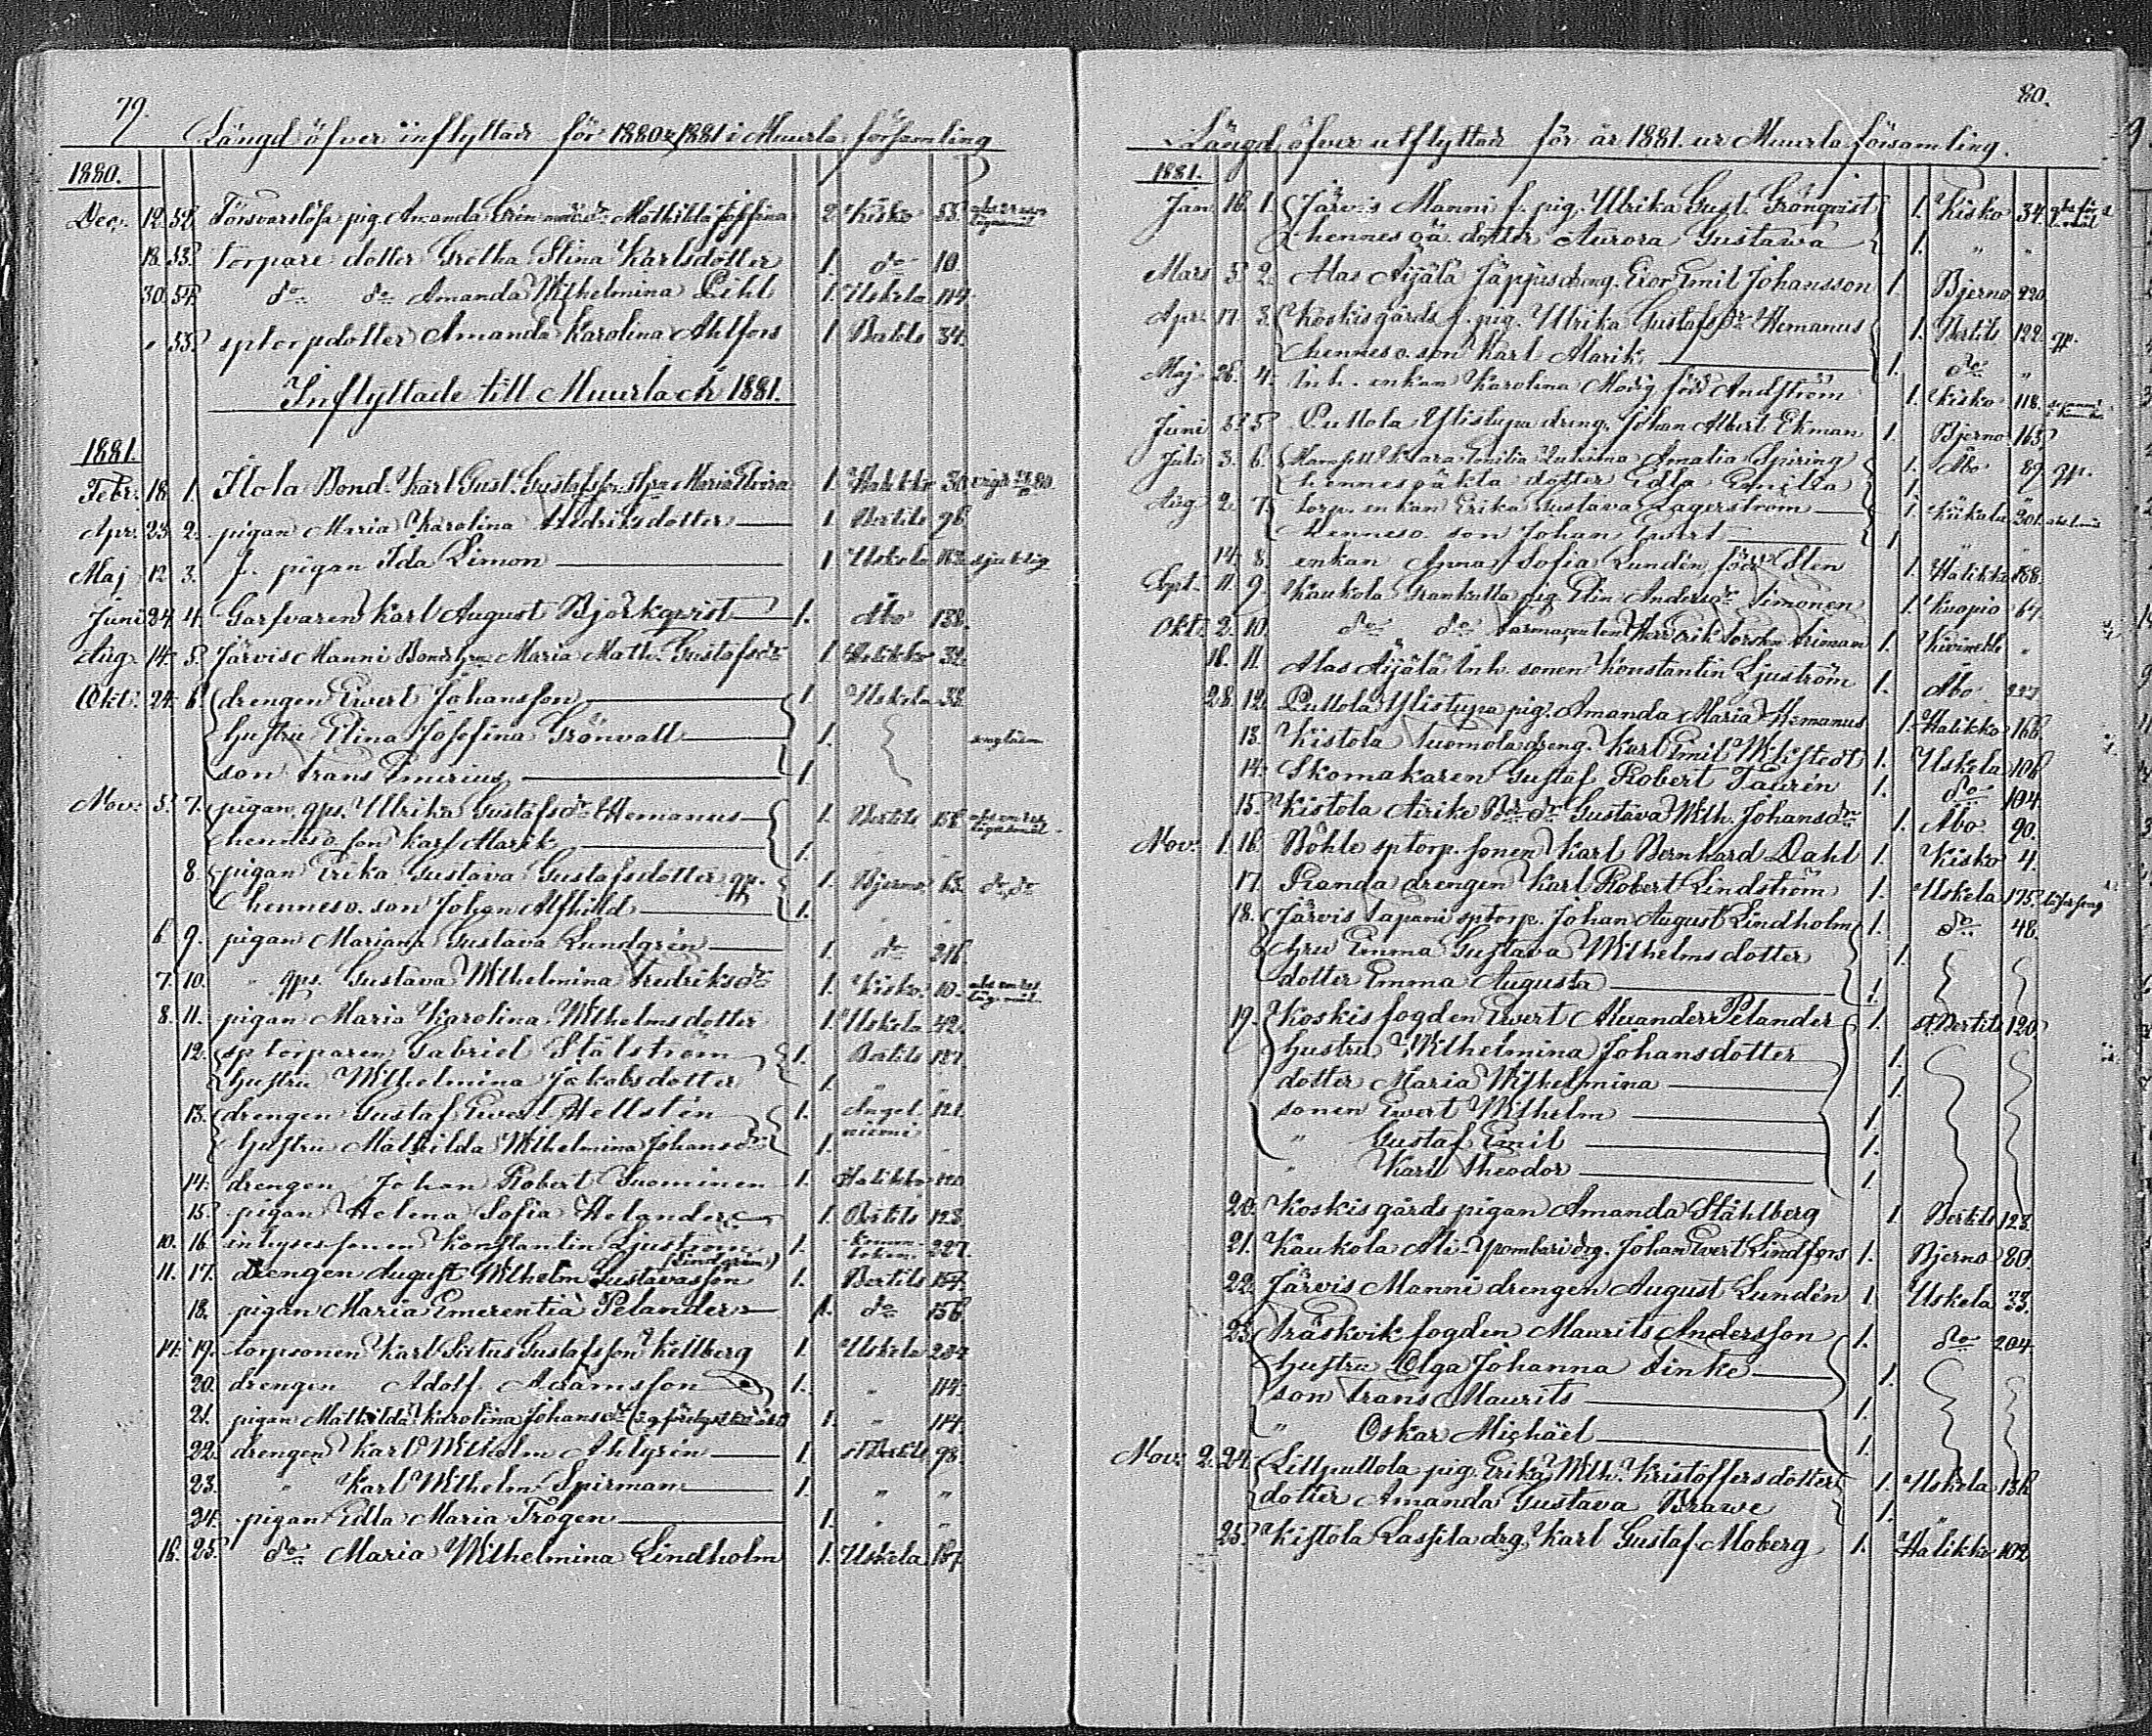 79.
Längd öfver inflyttade för 1880 & 1881 i Muurla församling
1880.
Dec. 12. 52. Försvarslösa pig. Amanda Lirén dr Mathilda Josefina 2. Kisko 53.
18. 53. torpare dotter Gretha Stina Karlsdotter 1. do 10.
30. 54. do do Amanda Wilhelmina Pihl 1. Uskela 114.
" 55. sptorpdotter Amanda Karolina Ahlfors 1 Bertils 34.
Inflyttade till Muurla år 1881.
1881.
Febr. 18. 1. Ilola Bond. Karl Gust. Gustafsson Maria Elvira 1 Halikko 30.
Apr. 23. 2. pigan Maria Karolina Fredriksdotter 1. Bertils 96.
Maj 12. 3. f. pigan Ida Limon 1 Uskela sjuklig
Juni 24. 4. Garfvaren Karl August Björkqvist 1. Åbo 138.
Aug. 14. 5. Järvis Manni Maria Math. Gustafsdr 1 Halikko 32.
Okt. 24. 6. drengen Evert Johansson 1. Uskela 32.
hustru Elina Josefina Grönvall 1.
son Frans Emirius 1.
Nov. 5. 7. pigan qps. Ulrika Gustafsdr Hemanus 1. Bertils
hennes o. son Karl Alarik 1.
8. pigan Erika Gustava Gustafsdotter qp. 1. Bjerno 63. do do
hennes o. son Johan Alfhild 1.
6. 9. pigan Mariana Gustava Lundgrén 1. do 216.
7. 10. " qps. Gustava Wilhelmina Fredriksdr 1. Kisko 10.
8. 11. pigan Maria Karolina Wilhelmsdotter 1. Uskela 42.
12. sptorparen Gabriel Stålström 1. Bertils 137.
hustru Wilhelmina Jakobsdotter 1. "
13. drengen Gustaf Evert Hellstén 1. Angelniemi 121.
hustru Mathilda Wilhelmina Johansdr 1.
14. drengen Johan Robert Suominen 1. Halikko 120.
15. pigan Helena Sofia Helander 1. Bertils 123.
10. 16. inhysessonen Konstantin Ljuström 1. 227.
11. 17. drengen August Wilhelm Gustavasson (Lindgrén) 1. Bertils 154.
18. pigan Maria Emerentia Pelander 1. do 156.
14. 19. torpsonen Karl Sixtus Gustafsson Killberg 1. Uskela 204.
20. drengen Adolf Adamsson 1. " 114.
21. pigan Mathilda Karolina Johansdr 1. " 114.
22. drengen Karl Wilhelm Ahlgrén 1. St Bertils 98.
23. " Karl Wilhelm Spirman 1. " "
24. pigan Edla Maria Frogen 1. " "
16. 25. do Maria Wilhelmina Lindholm 1. Uskela 187.
80.
Längd öfver utflyttade för år 1881. ur Muurla församling.
1881.
Jan 16. 1. Järvis Manni f. pig. Ulrika Gust. Grönqvist 1. Kisko 34.
hennes oä. dotter Aurora Gustawa 1. " "
Mars 3. 2. Alas Äijälä Jäppis dreng. Emil Johansson 1. Bjerno 220
Apr. 17. 3. Koskis gårds f. pig. Ulrika Gustafsdr Hemanus 1. Bertils 122. qp.
hennes o. son Karl Alarik 1. do "
Maj 26. 4. Inh. enkan Karolina Modig född Andström 1. Kisko 118.
Juni 5. 5. Pullola Ylistupa dreng. Johan Albert Ekman 1. Bjerno 165.
Juli 3. 6. Mamsell Klara Emilia Amalia Spiring 1. Åbo 89. qp.
hennes oäkta dotter Edla Emilia 1.
Aug. 2. 7. torp. enkan Erika Gustava Lagerström 1. Kiikala 301.
hennes o. son Johan Evert 1. "
14. 8. enkan Anna Sofia Lundén, född Sten 1. Halikko 158.
Sept. 11. 9. Kaukola Grankulla pig. Elin Andersdr Simonen 1. Kuopio 67
Okt. 2. 10. do do Herr Erik 1. Kivinebb "
18. 11. Alas Äijälä Inh. sonen Konstantin Ljuström 1. Åbo 227
28. 12. Pullola Ylistupa pig. Amanda Maria Hemanus 1. Halikko 166.
13. Kistola Tuomola dreng. Karl Emil Wihlstedt 1. Uskela 106
14. Skomakaren Gustaf Robert Taurén 1. do 104.
15. Kistola Äirike Gustava Wilh. Johansdr 1. Åbo 90.
Nov. 1. 16. Böhle sptorp. sonen Karl Bernhard Dahl 1. Kisko 4.
17. Randa drengen Karl Robert Lindström 1. Uskela 175.
18. Järvis Tapani sptorp. Johan August Lindholm 1. do 48.
hru Emma Gustava Wilhelmsdotter 1.
dotter Emma Augusta 1.
19. Koskis fogden Evert Alexander Pelander 1. St Bertils 120.
hustru Wilhelmina Johansdotter 1.
dotter Maria Wilhelmina 1.
sonen Evert Wilhelm 1.
" Gustaf Emil 1.
" Karl Theodor 1.
20. Koskis gårds pigan Amanda Ståhlberg 1. Bertils 128.
21. Kaukola drg. Johan Evert Lindfors 1. Bjerno 80.
22. Järvis Manni drengen August Lundén 1 Uskela 33.
23. Träskvik fogden Maurits Andersson 1. do 204
hustru Olga Johanna Finke 1.
son Frans Maurits 1.
" Oskar Michäel 1.
Nov. 2. 24. Lillpullola pig. Erika Wilh. Kristoffersdotter 1. Uskela 136
dotter Amanda Gustava Brawe 1. "
25. Kistola Lassila drg. Karl Gustaf Moberg 1. Halikko 102